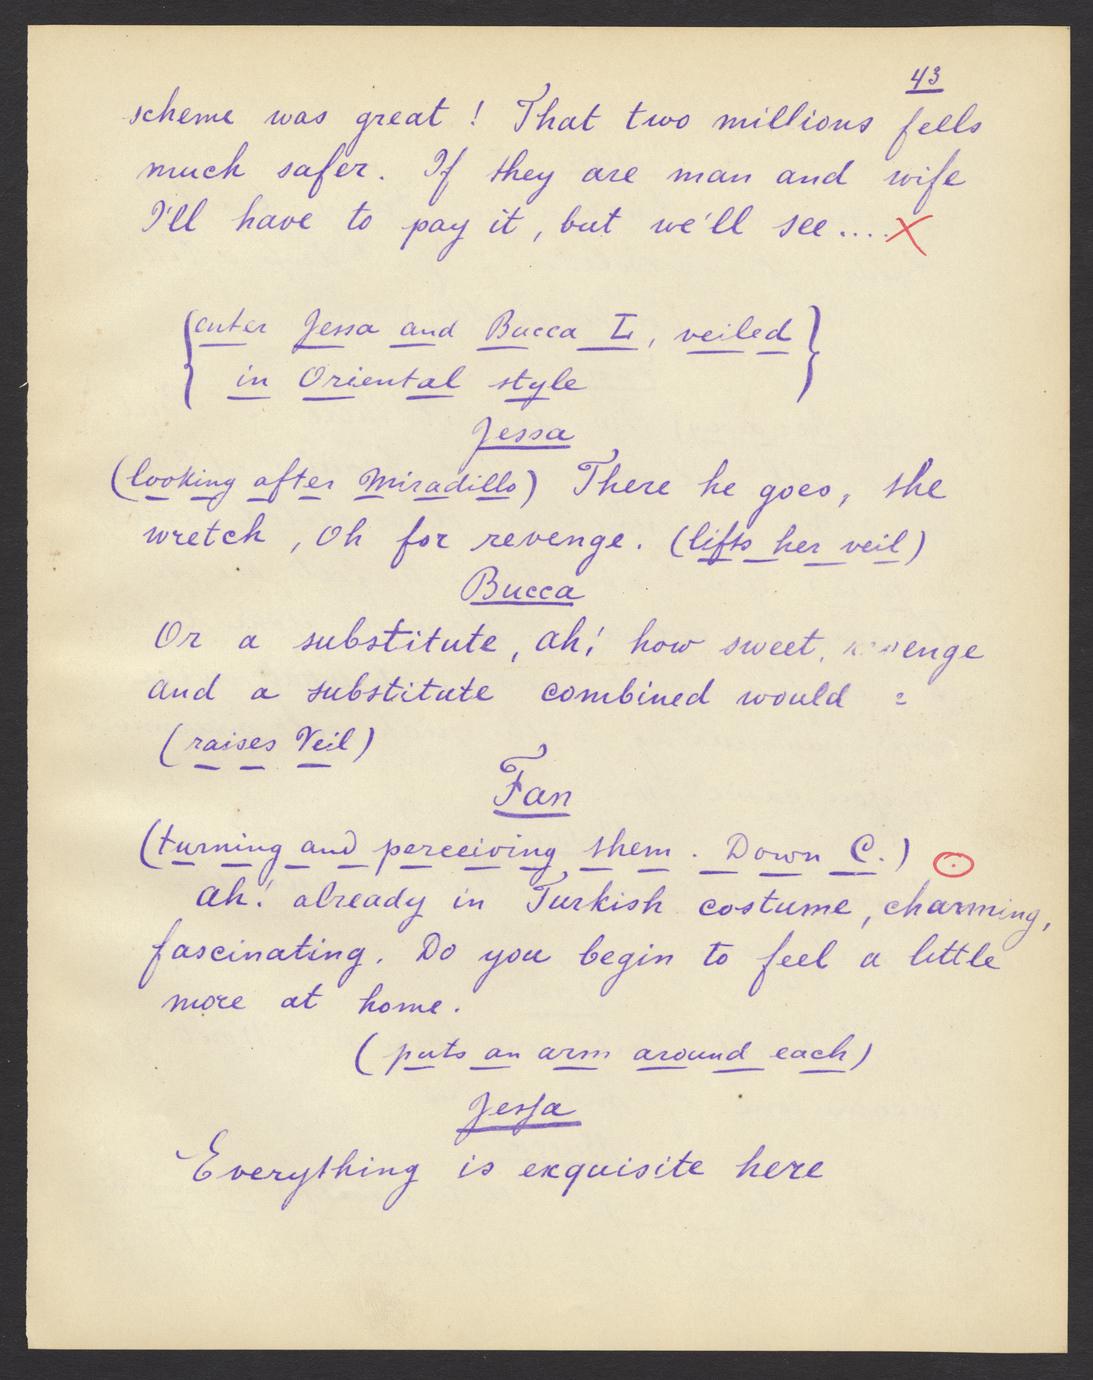 43
scheme was great! That two millions fells
much safer. If they are man and wife
I'll have to pay it, but we'll see....X
{enter Jessa and Bucca L, veiled
in Oriental style}
Jessa
(looking after Miradillo) There he goes, the
wretch, Oh for revenge. (lifts her veil)
Bucca
Or a substitute, ah! how sweet, revenge
and a substitute combined would =
(raises Veil)
Fan
(turning and perceiving them. Down C.)
ah! already in Turkish costume, charming,
fascinating. Do you begin to feel a little
more at home.
(puts an arm around each)
Jessa
Everything is exquisite here